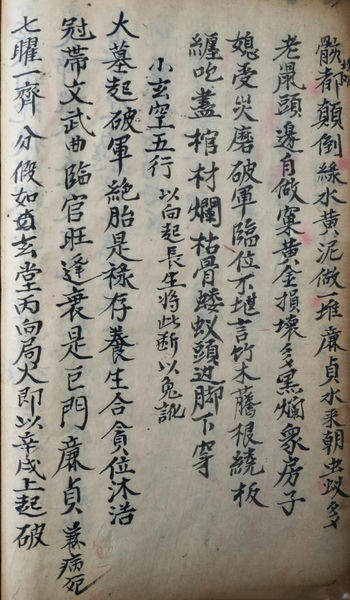 骸都顛倒綠水黃泥做堆廉貞水來朝虫蚁多
老鼠頭邊自做窠黃金損壞多黑爛象房子
媳受災磨破軍臨位不堪言竹木藤根繞板
纏吃蓋棺材爛枯骨蝼蚁頭边脚下穿
小玄空五行 以向起長生将此断以免訛
大墓起破軍絶胎是禄存養生合貪位沐浴
冠帶文武曲臨官旺逢衰是巨門廉貞兼病死
七曜一齊分假如玄堂丙向局火即以辛戌上起破